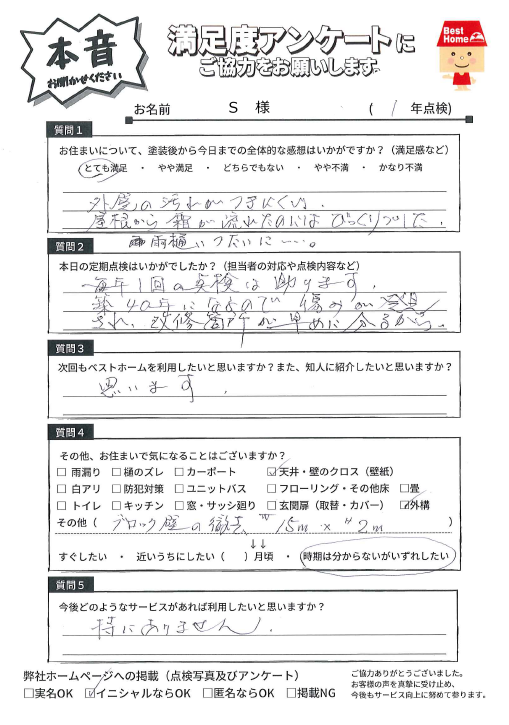 本音
お聞かせください
満足度アンケートに
ご協力をお願いします。
Best
Home
お名前 S 様 ( 1 年点検)
質問1
お住まいについて、塗装後から今日までの全体的な感想はいかがですか？（満足感など）
とても満足 ・ やや満足 ・ どちらでもない ・ やや不満 ・ かなり不満
外壁の汚れがつきにくい。
屋根から箱が流れたのにはびっくりでした。
雨樋いったいに……。
質問2
本日の定期点検はいかがでしたか？（担当者の対応や点検内容など）
毎年1回の点検は助ります。
築40年になるので傷みが
され、改修箇所が早めに分るから。
質問3
次回もベストホームを利用したいと思いますか？また、知人に紹介したいと思いますか？
思います。
質問4
その他、お住まいで気になることはございますか？
□ 雨漏り □ 樋のズレ □ カーポート ☑ 天井・壁のクロス（壁紙）
□ 白アリ □ 防犯対策 □ ユニットバス □ フローリング・その他床 □ 畳
□ トイレ □ キッチン □ 窓・サッシ廻り □ 玄関扉（取替・カバー） ☑ 外構
その他（ ブロック壁の撤去 15m × 2m ）
↓↓
すぐしたい ・ 近いうちにしたい（ ）月頃 ・ 時期は分からないがいずれしたい
質問5
今後どのようなサービスがあれば利用したいと思いますか？
特にありません。
弊社ホームページへの掲載（点検写真及びアンケート）
□実名OK ☑イニシャルならOK □匿名ならOK □掲載NG
ご協力ありがとうございました。
お客様の声を真摯に受け止め、
今後もサービス向上に努めて参ります。